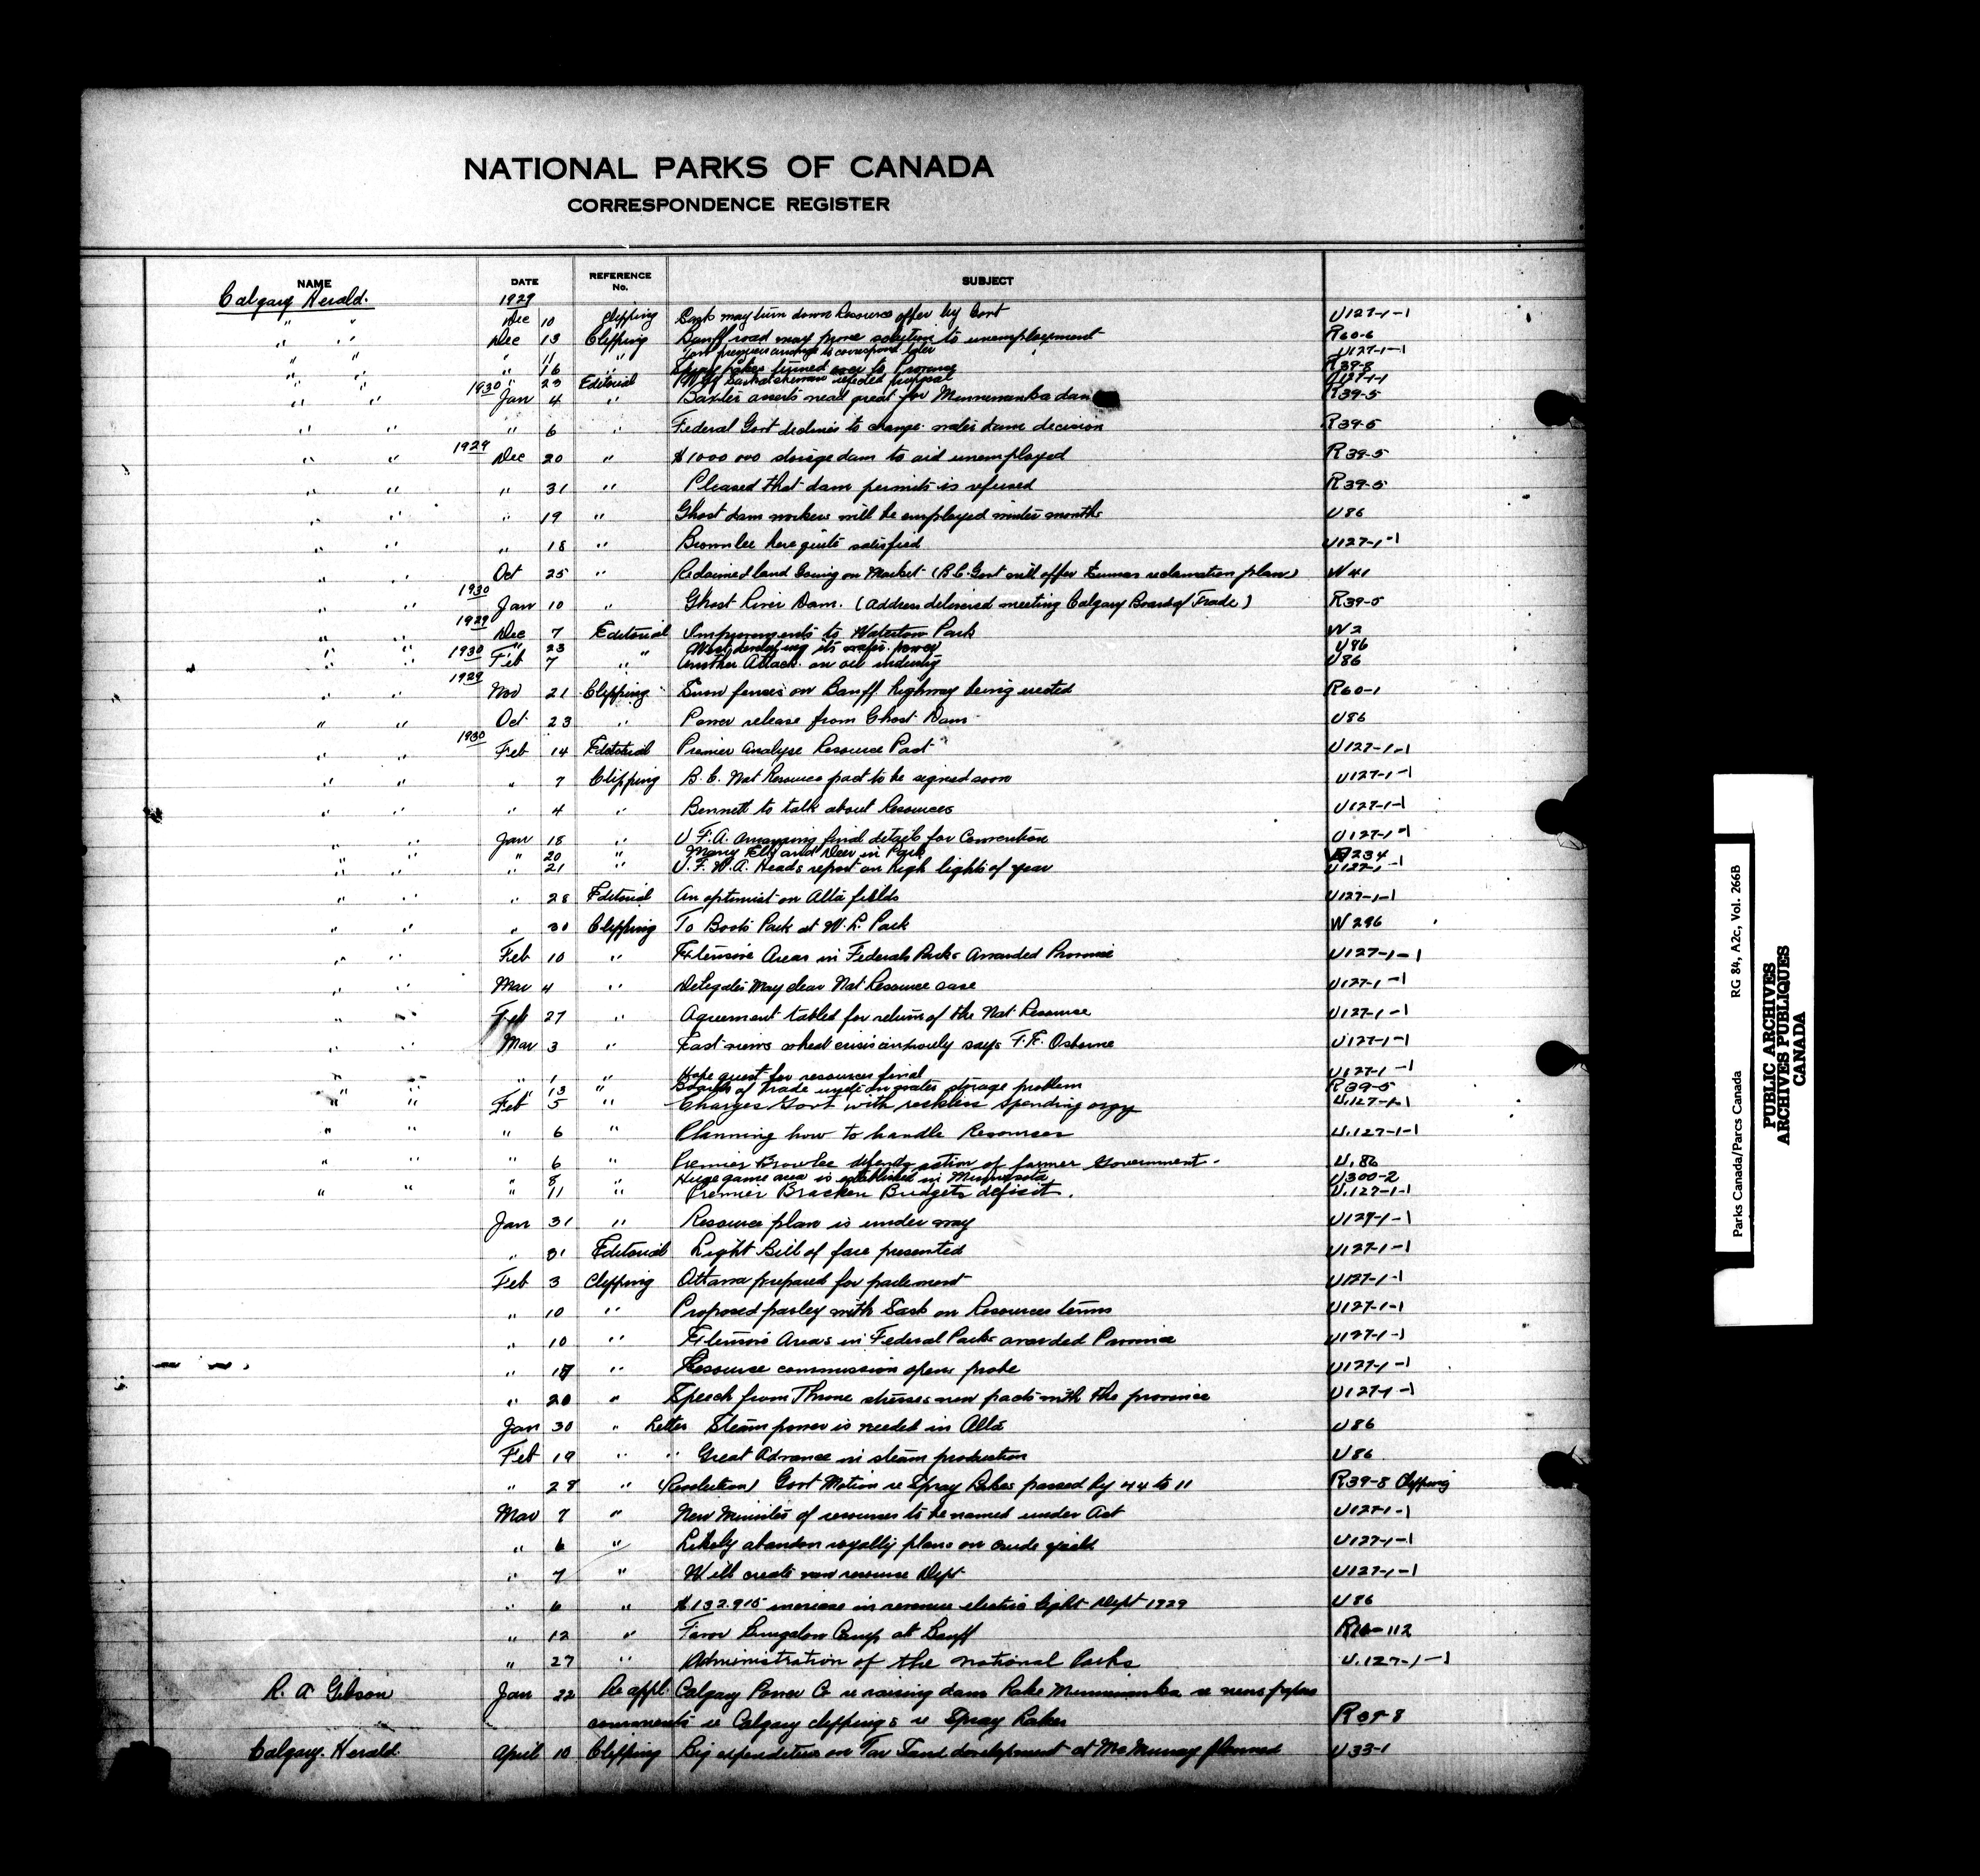 NATIONAL PARKS OF CANADA
CORRESPONDENCE REGISTER
NAME DATE REFERENCE No. SUBJECT
Calgary Herald. 1929
" " Dec 10 Clipping Sask may turn down Resource offer by Govt U127-1-1
" " Dec 13 Clipping Banff road may prove solution to unemployment R60-6
" " " 11 " premiers arrange to correspond later U127-1-1
" " " 16 " Spray Lakes turned over to Province R39-8
" " " 23 Editorial Why Saskatchewan rejected proposal U127-1-1
" " 1930 Jan 4 " Baxter asserts need great for Minnewanka dam R39-5
" " " 6 " Federal Govt declines to change water dam decision R39-5
" " 1929 Dec 20 " $1000 000 storage dam to aid unemployed R39-5
" " " 31 " Pleased that dam permits is refused R39-5
" " " 19 " Ghost dam workers will be employed winter months U86
" " " 18 " Brownlee here quite satisfied U127-1-1
" " Oct 25 " Reclaimed land Going on Market (B.C. Govt will offer Sumas reclamation plan) W41
" " 1930 Jan 10 " Ghost River Dam. (Address delivered meeting Calgary Board of Trade) R39-5
" " 1929 Dec 7 Editorial Improvements to Waterton Park W2
" " " 23 " West developing its water power U86
" " 1930 Feb 7 " Another Attack on oil industry U86
" " 1929 Nov 21 Clipping Snow fences on Banff highway being erected R60-1
" " Oct 23 " Power release from Ghost Dam U86
" " 1930 Feb 14 Editorial Premier Analyse Resource Pact U127-1-1
" " " 7 Clipping B.C. Nat Resource pact to be signed soon U127-1-1
" " " 4 " Bennett to talk about Resources U127-1-1
" " Jan 18 " U.F.A. arranging final details for Convention U127-1-1
" " " 20 " Many Elk and Deer in Park 234
" " " 21 " U.F.W.A. Heads report on high lights of year U127-1-1
" " " 28 Editorial An optimist on Alta fields U127-1-1
" " " 30 Clipping To Boost Park at W.L. Park W296
" " Feb 10 " Extensive Areas in Federal Parks Awarded Province U127-1-1
" " Mar 4 " Delegates May clear Nat Resource case U127-1-1
" " Feb 27 " Agreement tabled for return of the Nat Resource U127-1-1
" " Mar 3 " East views wheat crisis anxiously says F.F. Osborne U127-1-1
" " " 1 " Hope quest for resources final U127-1-1
" " " 13 " Boards of Trade unite on water storage problem R39-5
" " Feb 5 " Charges Govt with reckless spending orgy U.127-1-1
" " " 6 " Planning how to handle Resources U.127-1-1
" " " 6 " Premier Brownlee defends action of former Government. U.86
" 8 " Huge game area is established in Minnesota U300-2
" " " 11 " Premier Bracken Budgets deficit. U.127-1-1
Jan 31 " Resource plan is under way U127-1-1
" 31 Editorial Light Bill of fare presented U127-1-1
Feb 3 Clipping Ottawa prepared for parlement U127-1-1
" 10 " Proposed parley with Sask on Resources terms U127-1-1
" 10 " Extensive Areas in Federal Parks awarded Province U127-1-1
" 17 " Resource commission opens probe U127-1-1
" 20 " Speech from Throne stresses new pacts with the province U127-1-1
Jan 30 " Letter Steam power is needed in Alta U86
Feb 19 " " Great Advance in steam production U86
" 28 " (Resolution) Govt Motion re Spray Lakes passed by 44 to 11 R39-8 Clipping
Mar 7 " New Minister of resources to be named under Act U127-1-1
" 6 " Likely abandon royalty plans on crude yield U127-1-1
" 7 " Will create new resource Dept U127-1-1
" 6 " $132.915 increase in revenue electric light Dept 1929 U86
" 12 " Favor Bungalow Camp at Banff R16-112
" 27 " Administration of the national Parks U.127-1-1
R. A Gibson Jan 22 Re appl. Calgary Power Co re raising dam Lake Minnewanka re news papers
comments re Calgary clippings re Spray Lakes R39-8
Calgary Herald April 10 Clipping Big expenditure on Tar Sand development at McMurray planned U33-1
Parks Canada/Parcs Canada RG 84, A2c, Vol. 266B
PUBLIC ARCHIVES
ARCHIVES PUBLIQUES
CANADA